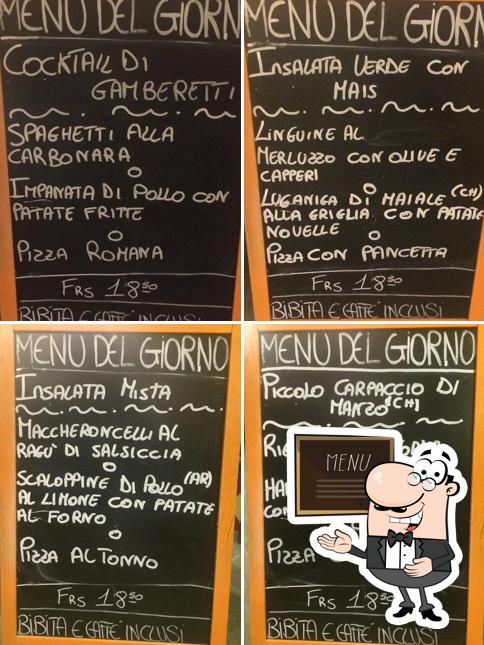 MENU DEL GIORNO
COCKTAIL DI
GAMBERETTI
SPAGHETTI ALLA
CARBONARA
O
IMPANATA DI POLLO CON
PATATE FRITTE
O
PIZZA ROMANA
FRS 18.50
BIBITA E CAFFÈ INCLUSI
MENU DEL GIORN
INSALATA VERDE CON
MAIS
LINGUINE AL
MERLUZZO CON OLIVE E
CAPPERI
O
LUGANIGA DI MAIALE (CH)
ALLA GRIGLIA CON PATATE
NOVELLE
O
PIZZA CON PANCETTA
FRS 18.50
BIBITA E CAFFÈ INCLUSI
MENU DEL GIORNO
INSALATA MISTA
MACCHERONCELLI AL
RAGU' DI SALSICCIA
O
SCALOPPINE DI POLLO (AR)
AL LIMONE CON PATATE
AL FORNO
O
PIZZA AL TONNO
FRS 18.50
BIBITA E CAFFÈ INCLUSI
MENU DEL GIORNO
PICCOLO CARPACCIO DI
MANZO (CH)
MENU
PIZZA
FRS 18.50
BIBITA E CAFFÈ INCLUSI